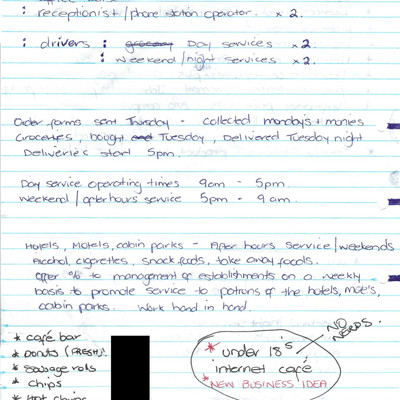 : receptionist / phone station operator. x 2.
: drivers : Day services x 2
: Weekend / night services x 2.
Order forms sent Thursday - collected monday's + monies
Groceries, bought Tuesday, Delivered Tuesday night
Deliverie's start 5pm.
Day service operating times 9am - 5pm.
Weekend / afterhours service 5pm - 9am.
Hotels, Motels, cabin parks - After hours service / weekends
Alcohol, cigarettes, snack foods, take away foods.
offer % to management of establishments on a weekly
basis to promote service to patrons of the hotels, mote's,
cabin parks. Work hand in hand.
NO NERDS.
* café bar
* Donuts (FRESH)
* Sausage rolls
* chips
* Hot chips
* under 18's
internet café
* NEW BUSINESS IDEA